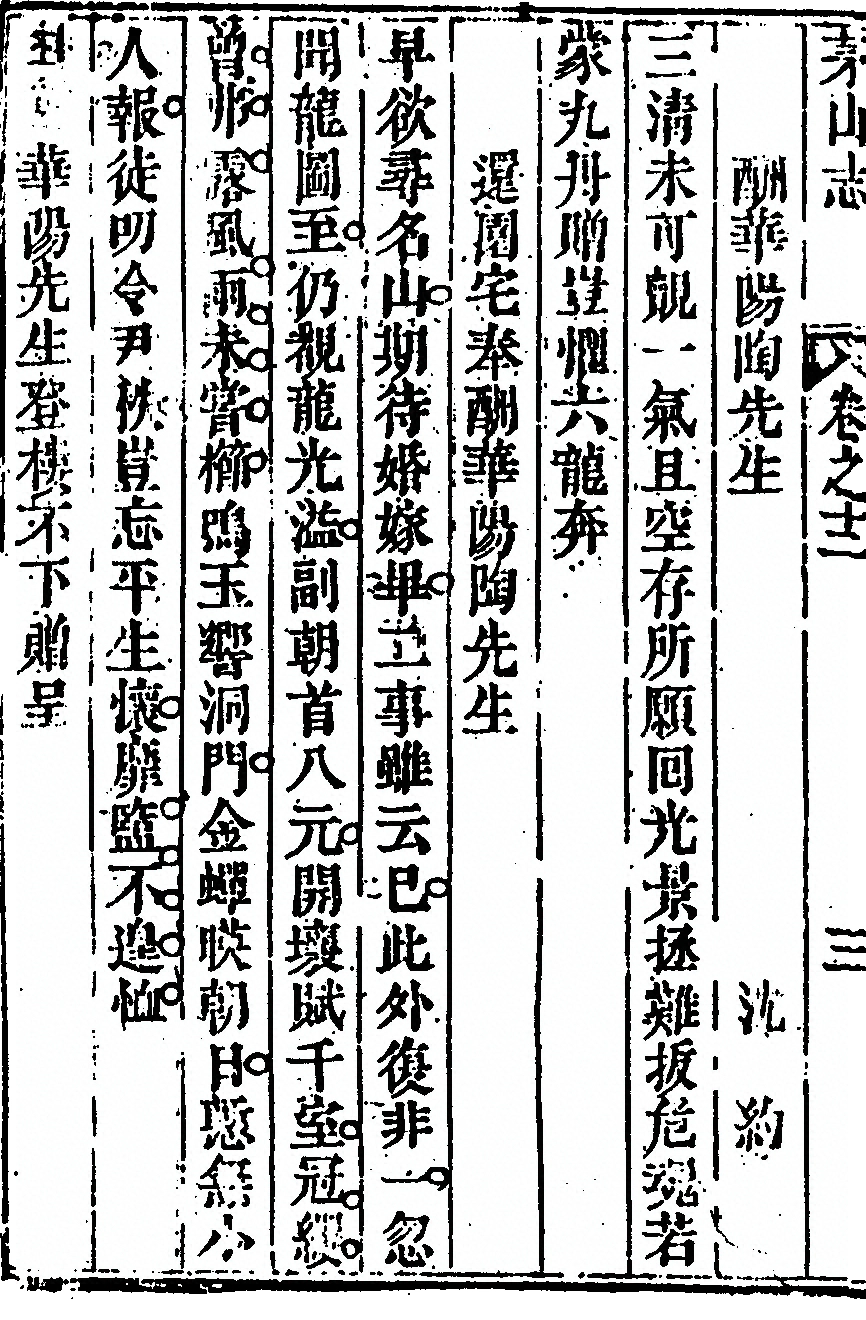 茅山志 卷之十二 三
酬華陽陶先生 沈約
三清未可覿一氣且空存所願回光景拯難扳危魂若
蒙九丹贈豈懼六龍奔
還園宅奉酬華陽陶先生
早欲尋名山期待婚嫁畢二事雖云已此外復非一忽
聞龍圖至仍覩龍光溢副朝首八元開壤賦千室冠纓
曾弗露風雨未嘗櫛鳴玉響洞門金蟬暎朝日慙無小
人報徒叨令尹秩豈忘平生懷靡盬不遑恤
華陽先生登樓不下贈呈